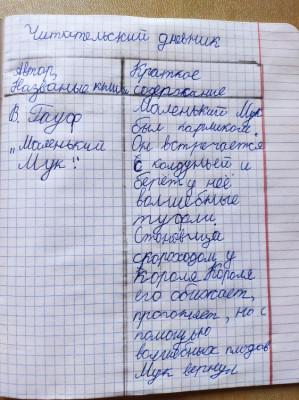 Читательский дневник
Автор, Краткое
Название книги содержание
В. Гауф Маленький Мук
был карликом.
„Маленький Он встречается
Мук." с колдуньей и
берёт у неё
волшебные
туфли.
Становица
скороходом у
Короля Короля
его обижает,
прогоняет, но с
помощью
волшебных плодов
Мук вернул